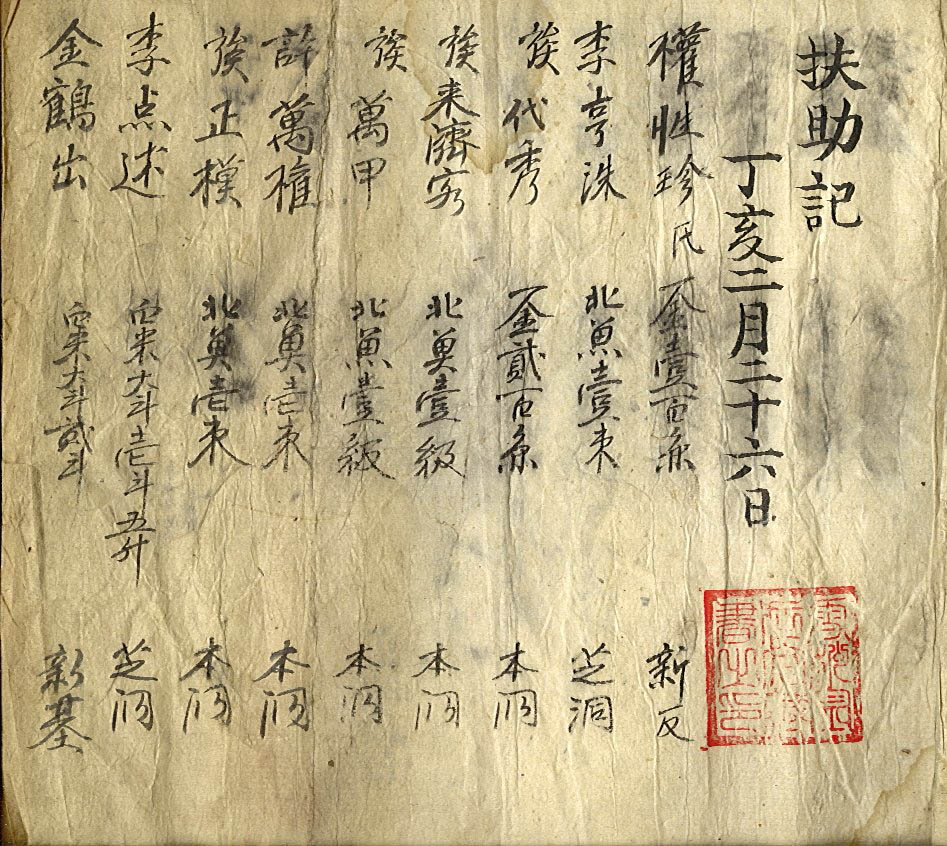 扶助記
丁亥二月二十六日
權性珍氏 金壹百z 新反
李亨洙 北魚壹束 芝洞
族代秀 金貳百 本洞
族来濟客 北魚壹級 本洞
族萬甲 北魚壹級 本洞
許萬權 北魚壱束 本洞
族正模 北魚壱束 本洞
李点述 白米大斗壱斗五升 芝洞
金鶴出 白米大斗貳斗 新基